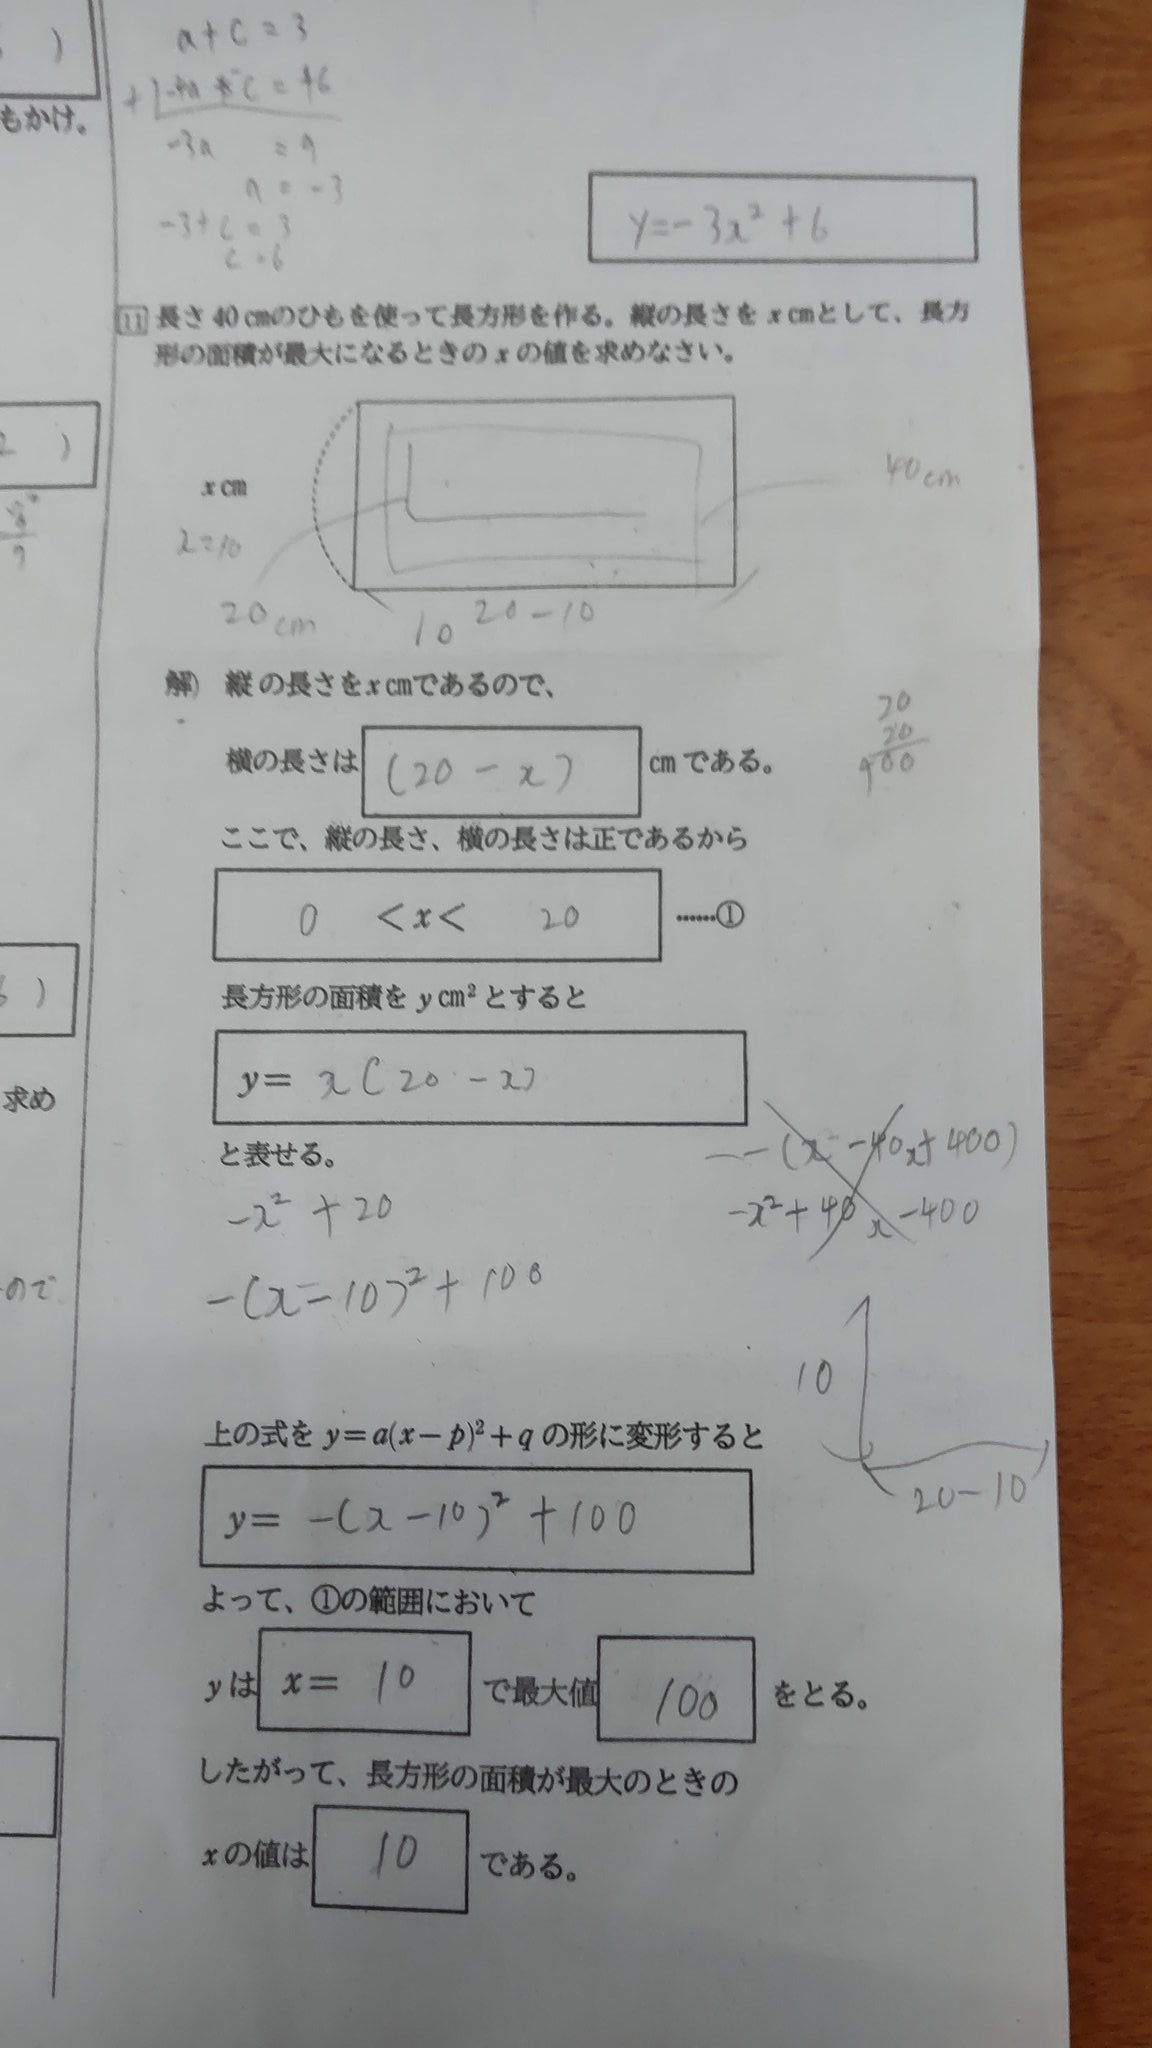 )
もかけ。
2 )
9
)
求め
ので
a+c=3
-3a =9
a=-3
-3+c=3
c=6
y=-3x²+6
11 長さ40cmのひもを使って長方形を作る。縦の長さをxcmとして、長方
形の面積が最大になるときのxの値を求めなさい。
40cm
xcm
x=10
20cm
10 20-10
解) 縦の長さをxcmであるので、
20
20
400
横の長さは (20-x) cmである。
ここで、縦の長さ、横の長さは正であるから
0 <x< 20 ……①
長方形の面積をycm²とすると
y= x(20-x)
と表せる。
-(x-40x+400)
-x²+20
-x²+40x-400
-(x-10)²+100
10
20-10
上の式を y=a(x-p)²+q の形に変形すると
y= -(x-10)²+100
よって、①の範囲において
yは x= 10 で最大値 100 をとる。
したがって、長方形の面積が最大のときの
xの値は 10 である。